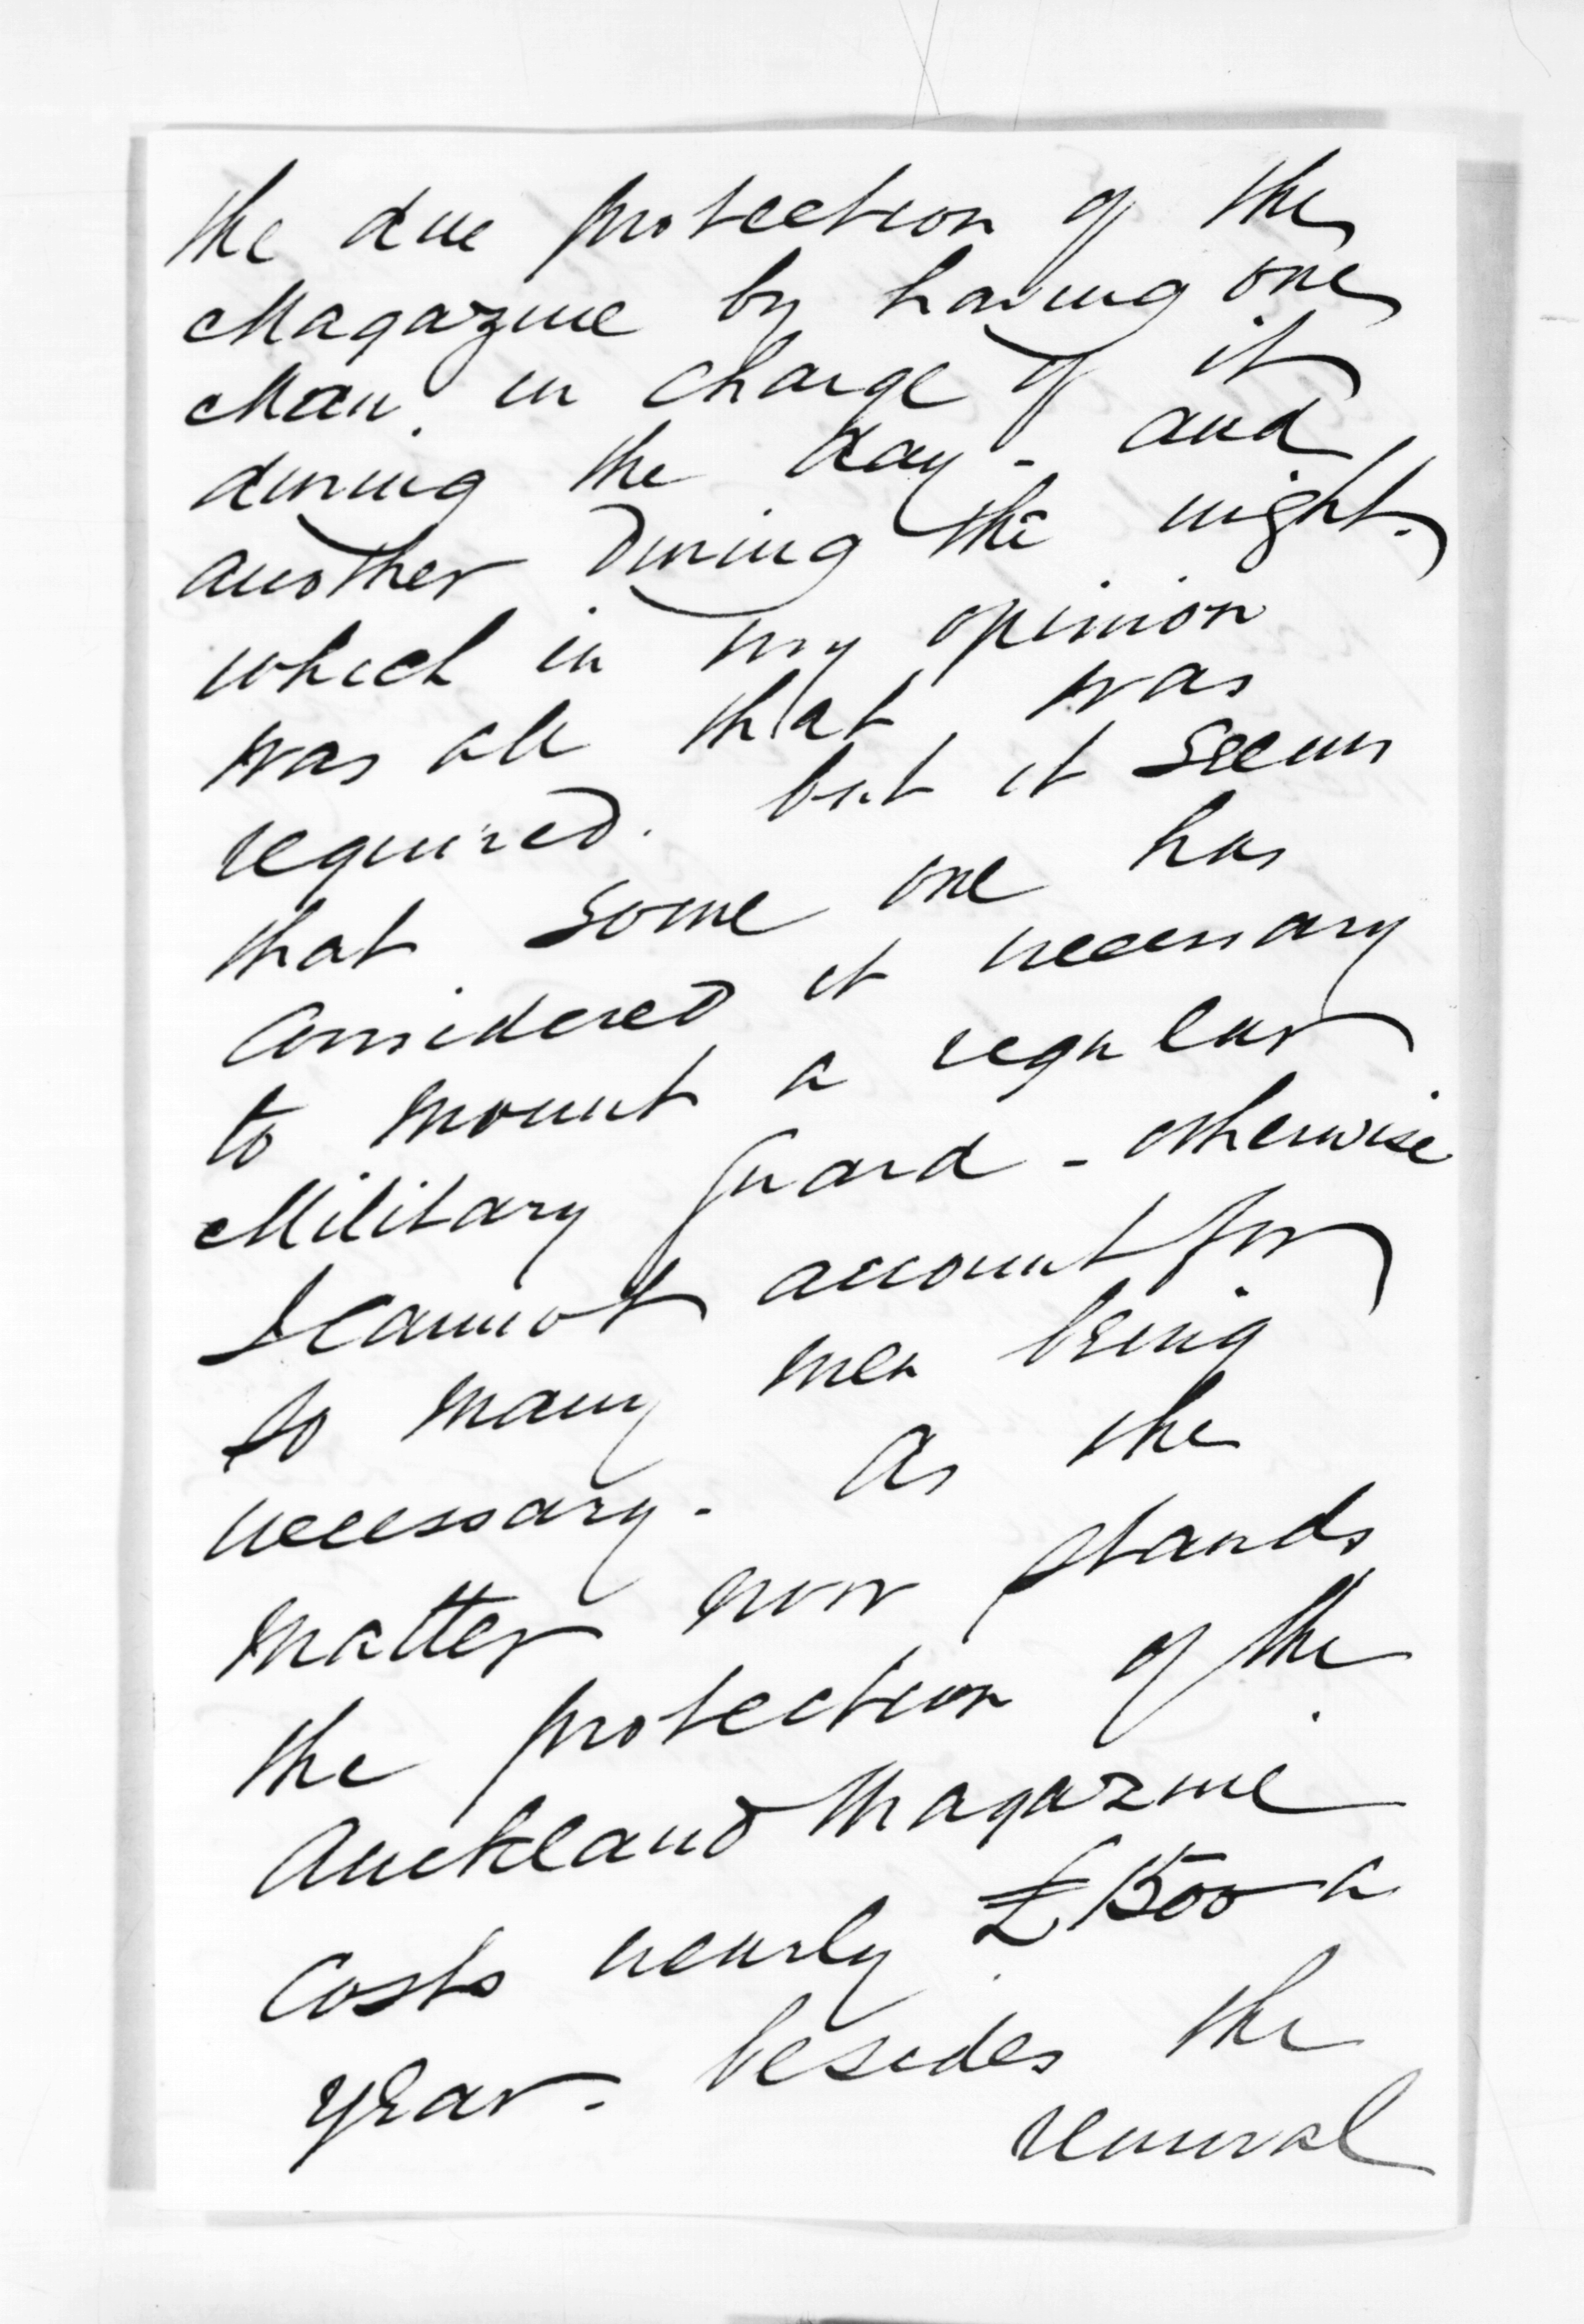 the due protection of the
Magazine by having one
Man in charge of it
during the day - and
another during the night.
which in my opinion
was all that was
required. but it seems
that some one has
Considered it necessary
to mount a regular
Military Guard - otherwise
I cannot account for
so many men being
necessary - As the
matter now stands
the protection of the
Auckland Magazine
costs nearly £1500 a
year - besides the
removal